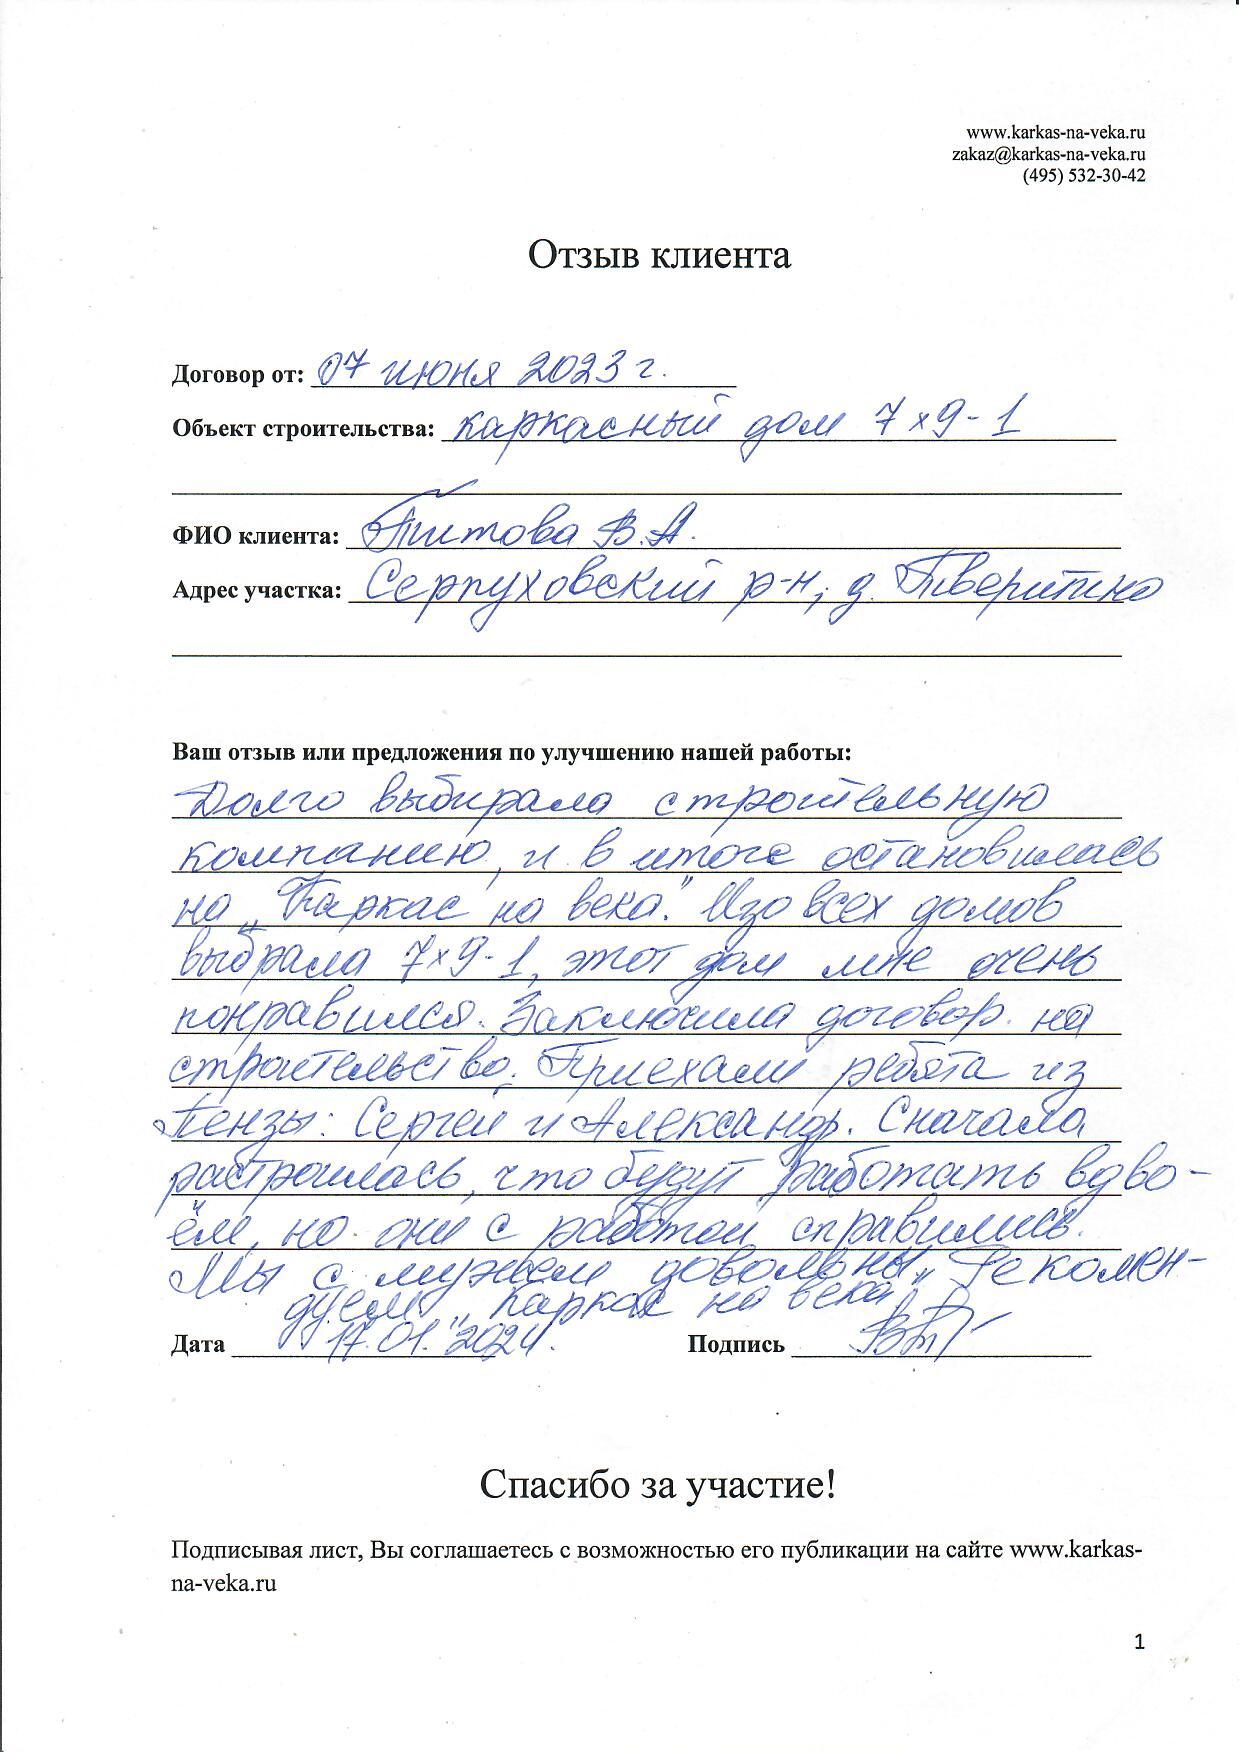 www.karkas-na-veka.ru
zakaz@karkas-na-veka.ru
(495) 532-30-42
Отзыв клиента
Договор от: 07 июня 2023 г.
Объект строительства: каркасный дом 7х9-1
ФИО клиента: Титова В.А.
Адрес участка: Серпуховский р-н, д. Тверитино
Ваш отзыв или предложения по улучшению нашей работы:
Долго выбирала строительную
компанию, и в итоге остановилась
на „Каркас на века". Изо всех домов
выбрала 7х9-1, этот дом мне очень
понравился. Заключила договор на
строительство. Приехали ребята из
Пензы: Сергей и Александр. Сначала
расстроилась, что будут работать вдво-
ём, но они с работой справились.
Мы с мужем довольны. Рекомен-
дуем „Каркас на века"
Дата 17.01.2024. Подпись
Спасибо за участие!
Подписывая лист, Вы соглашаетесь с возможностью его публикации на сайте www.karkas-
na-veka.ru
1